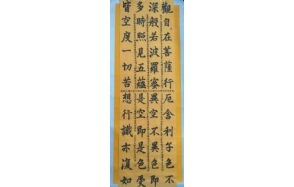 觀自在菩薩行
深般若波羅蜜
多時照見五蘊
皆空度一切苦
厄舍利子色不
異空不異色即
是空即是色受
想行識亦復如